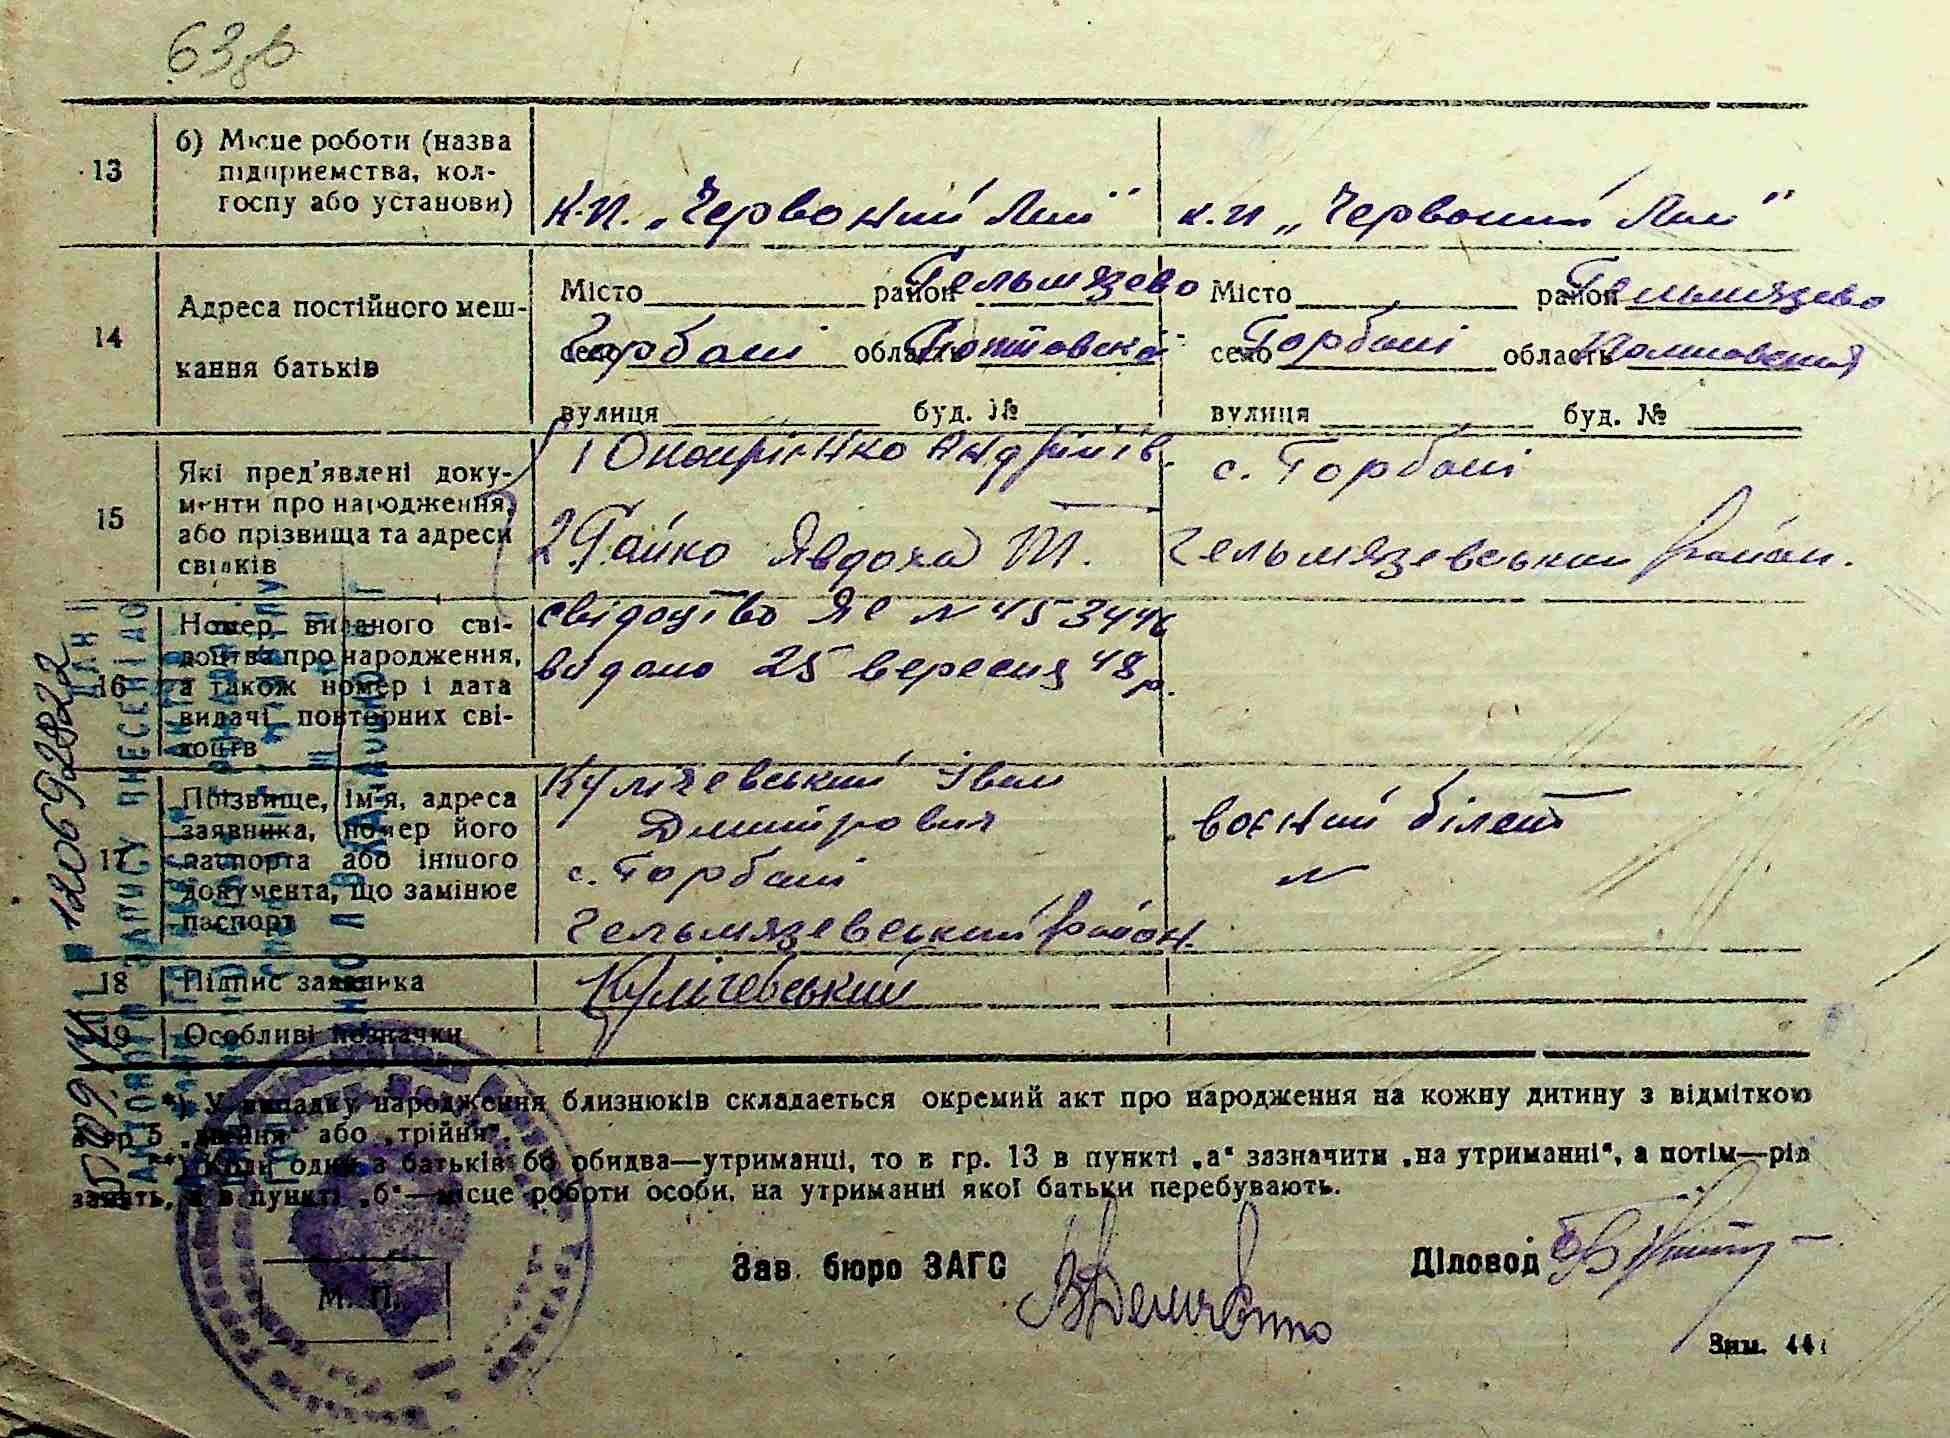 13 б) Місце роботи (назва підприємства, кол-госпу або установи)
к.п. „Червоний Лан"
к.п „Червоний Лан"
14 Адреса постійного меш-
кання батьків
Місто район Гельмязево
село Горбані область Полтовська
вулиця буд. №
Місто район Гельмязево
село Горбані область
вулиця буд. №
15 Які пред'явлені доку-
менти про народження,
або прізвища та адреси
свідків
1 Онопрієнко Андрій
2 Гайко Явдоха Т.
с. Горбані
Гельмязевський район.
16 Номер виданого сві-
доцтва про народження,
а також номер і дата
видачі повторних сві-
доцтв
свідоцтво ЯС N
видано 25 вересня 48 р.
17 Прізвище, ім'я, адреса
заявника, номер його
паспорта або іншого
документа, що замінює
паспорт
Кулічевський Іван
Дмитрович
с. Горбані
Гельмязевський район.
воєний білет
N
18 Підпис заявника
Кулічевський
19 Особливі позначки
*) У випадку народження близнюків складається окремий акт про народження на кожну дитину з відміткою
в гр 5 „двійня" або „трійня".
**) Коли один з батьків бо обидва—утриманці, то в гр. 13 в пункті „а" зазначити „на утриманні", а потім—рід
занять, а в пункті „б"—місце роботи особи, на утриманні якої батьки перебувають.
Зав. бюро ЗАГС
Діловод
М. П.
Зам.